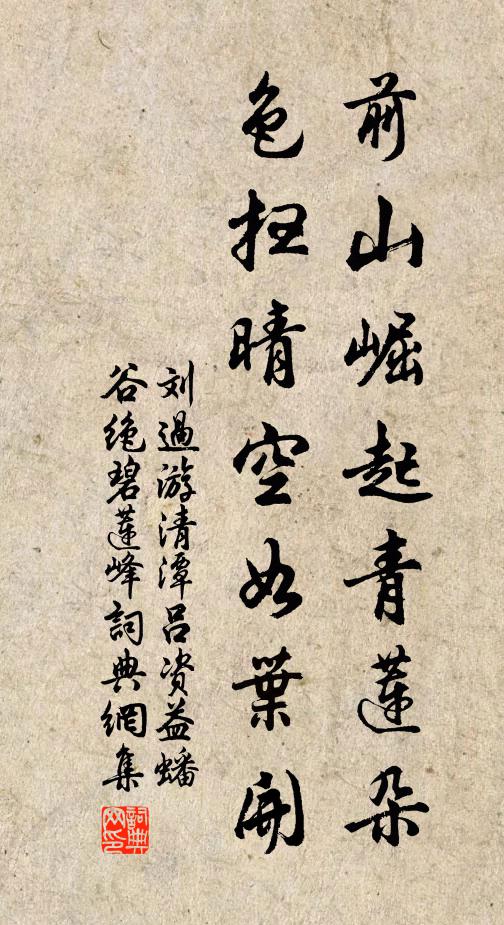 前山崛起青莲朵
色扫晴空如叶開
刘過游清潭吕资益蟠
谷绝碧莲峰詞典網集
詞典
网印